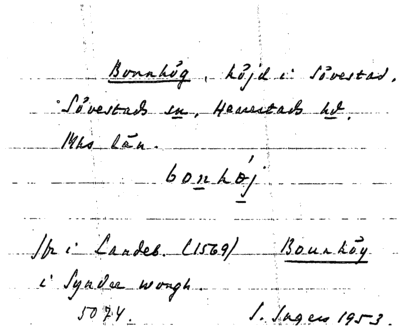 Bonnhög, höjd i Sövestad,
Sövestads sn, Herrestads hd,
Mhs län.
bonhøj
Jfr i Landeb. (1569) Bonnhöy
i Syndre wongh.
5074. S. Ingers 1953.